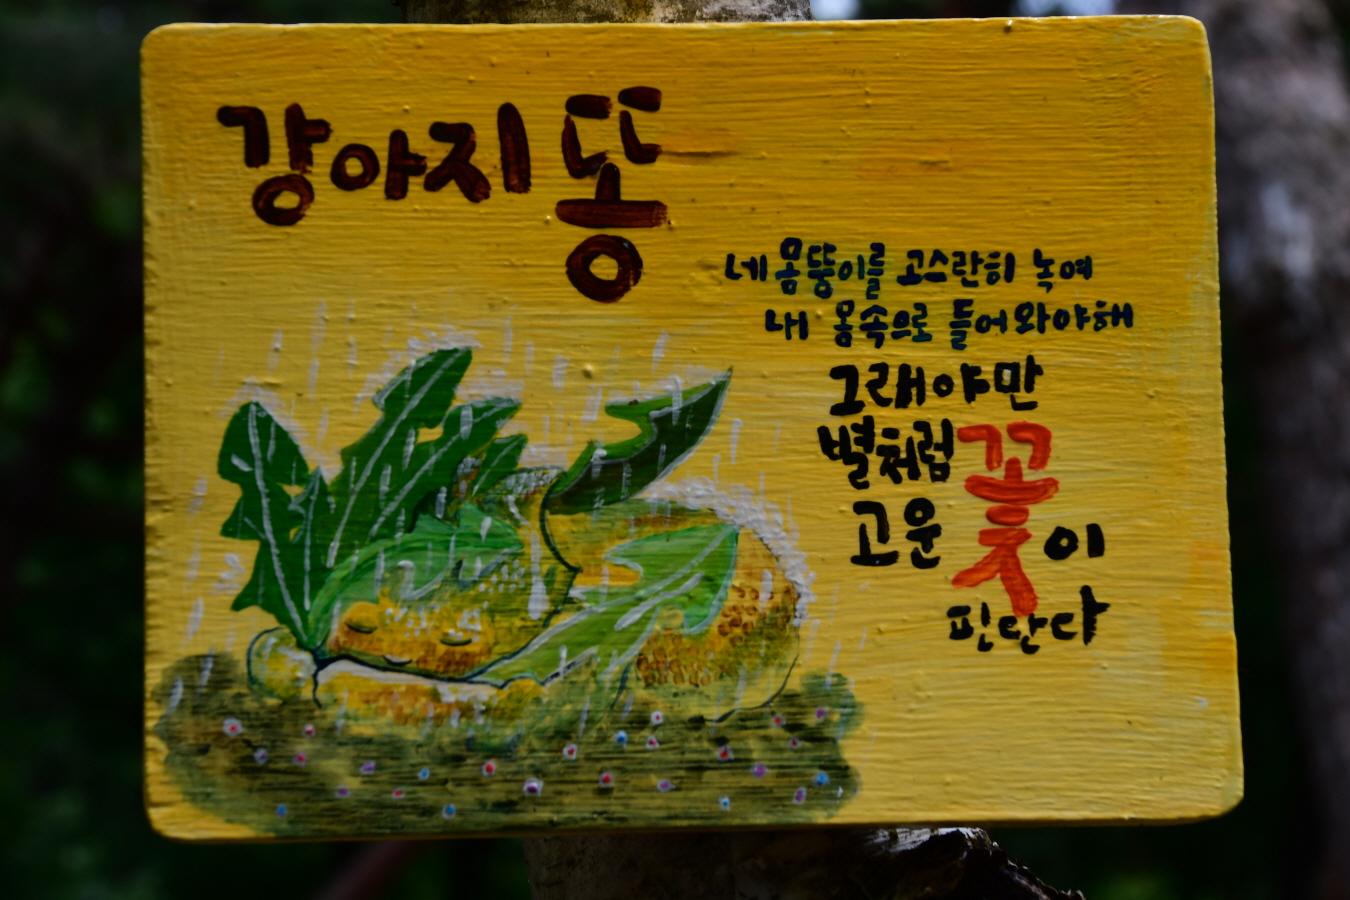 강아지 똥
네 몸뚱이를 고스란히 녹여
내 몸속으로 들어와야해
그래야만
별처럼 꽃
고운 이
핀단다